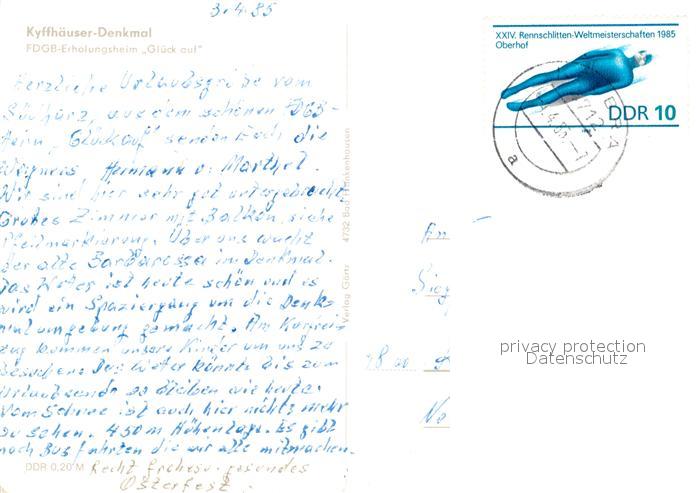 3.4.85
Kyffhäuser-Denkmal
FDGB-Erholungsheim „Glück auf"
Herzliche Urlaubsgrüße vom
Südharz, aus dem schönen FDGB
Heim „Glückauf" senden Euch die
Wagners, Hermann u. Marthel.
Wir sind hier sehr gut untergebracht
Großes Zimmer mit Balkon, siehe
Pfeilmarkierung. Über uns wacht
der alte Barbarossa im Denkmal.
Das Weter ist heute schön und es
wird ein Spaziergang um die Denk-
malumgebung gemacht. Am
kommen unsere Kinder um uns zu
besuchen. Das Weter könnte bis zum
Urlaubsende so bleiben wie heute.
Vom Schnee ist auch hier nichts mehr
zu sehen. 450 m Höhenlage. Es gibt
noch Busfahrten die wir alle mitmachen.
Recht frohes u. gesundes
Osterfest.
DDR 0,20 M
Verlag Görtz 4732 Bad Frankenhausen
XXIV. Rennschlitten-Weltmeisterschaften 1985
Oberhof
DDR 10
a
privacy protection
Datenschutz